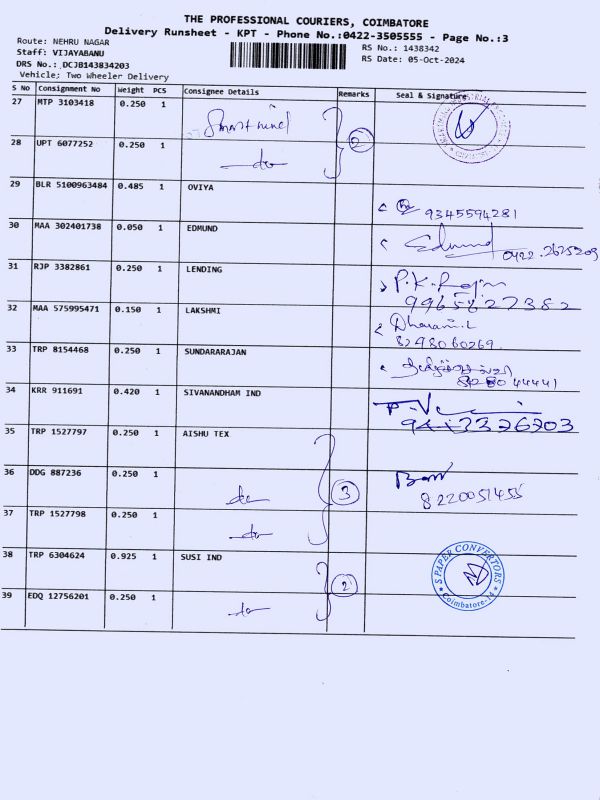 THE PROFESSIONAL COURIERS, COIMBATORE
Delivery Runsheet - KPT - Phone No.:0422-3505555 - Page No.:3
Route: NEHRU NAGAR
RS No.: 1438342
Staff: VIJAYABANU
RS Date: 05-Oct-2024
DRS No.: DCJB143834203
Vehicle; Two Wheeler Delivery
S No Consignment No Weight PCS Consignee Details Remarks Seal & Signature
27 MTP 3103418 0.250 1
28 UPT 6077252 0.250 1 do 2
29 BLR 5100963484 0.485 1 OVIYA 9345594281
30 MAA 302401738 0.050 1 EDMUND Edmund 0422.2625209
31 RJP 3382861 0.250 1 LENDING 9965827382
32 MAA 575995471 0.150 1 LAKSHMI 8298060269
33 TRP 8154468 0.250 1 SUNDARARAJAN
34 KRR 911691 0.420 1 SIVANANDHAM IND
35 TRP 1527797 0.250 1 AISHU TEX
36 DDG 887236 0.250 1 do 3 8220051455
37 TRP 1527798 0.250 1 do
38 TRP 6304624 0.925 1 SUSI IND 2 S PAPER CONVERTORS Coimbatore-14
39 EDQ 12756201 0.250 1 do